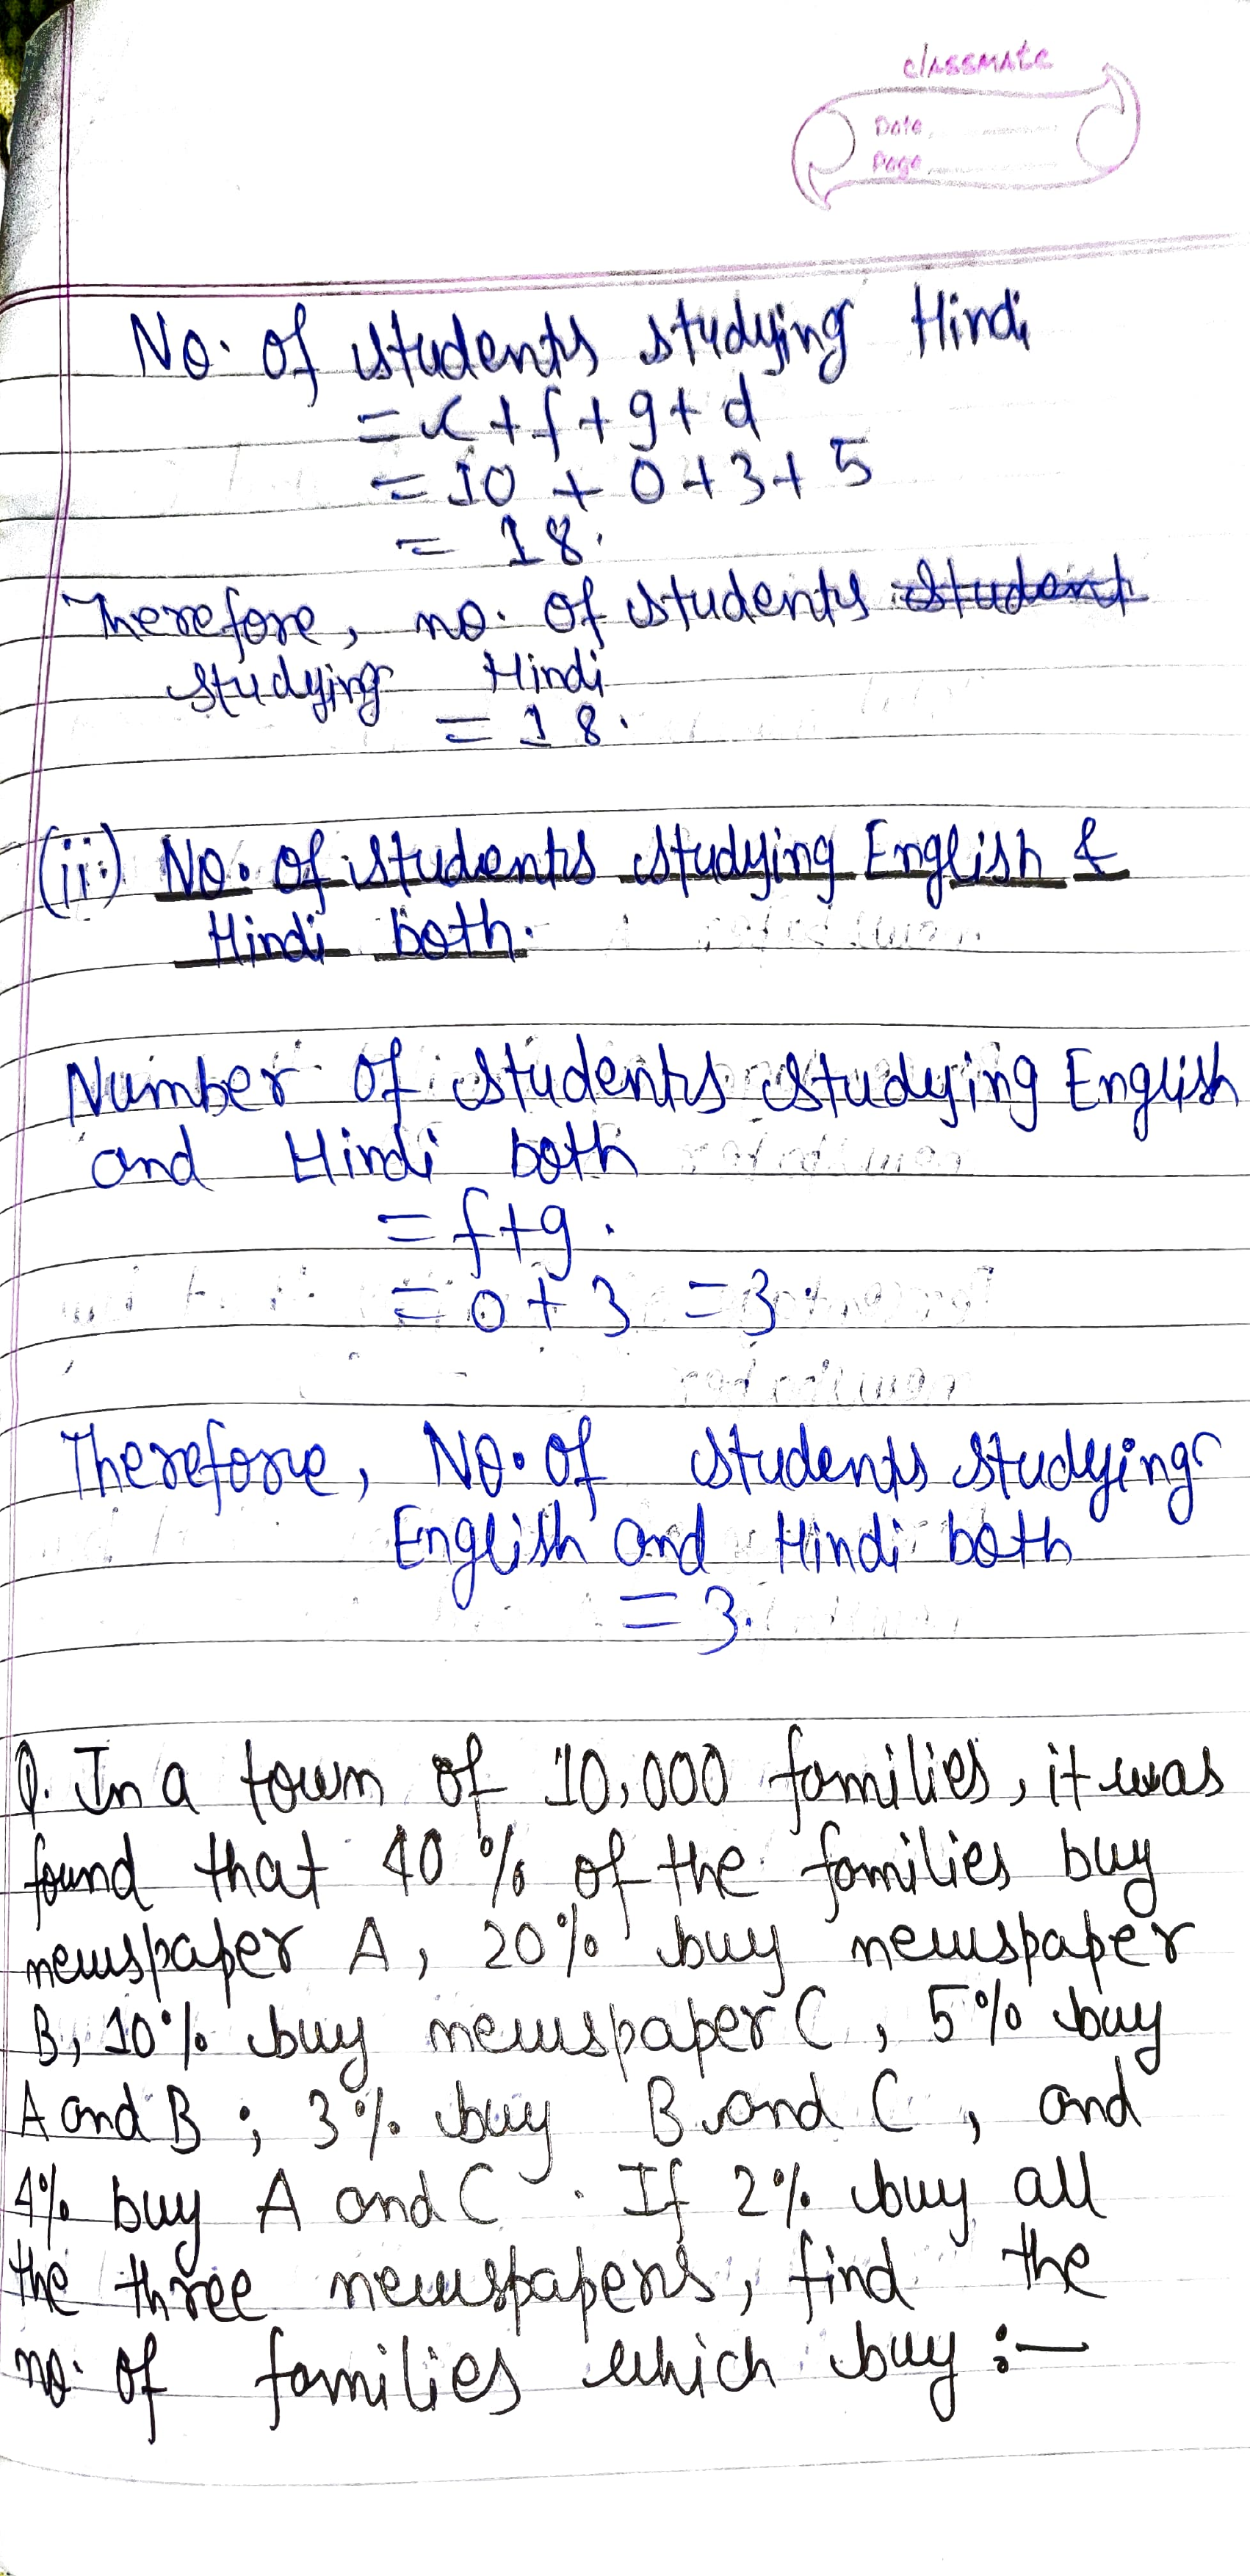 classmate
Date
Page
No. of students studying Hindi
= c + f + g + d
= 10 + 0 + 3 + 5
= 18.
Therefore, no. of students student
studying Hindi
= 18.
(ii) No. of students studying English &
Hindi both.
Number of students studying English
and Hindi both
= f + g.
= 0 + 3 = 3
Therefore, No. of students studying
English and Hindi both
= 3.
Q. In a town of 10,000 families, it was
found that 40 % of the families buy
newspaper A, 20% buy newspaper
B, 10% buy newspaper C, 5% buy
A and B ; 3% buy B and C, and
4% buy A and C. If 2% buy all
the three newspapers, find the
no. of families which buy :-